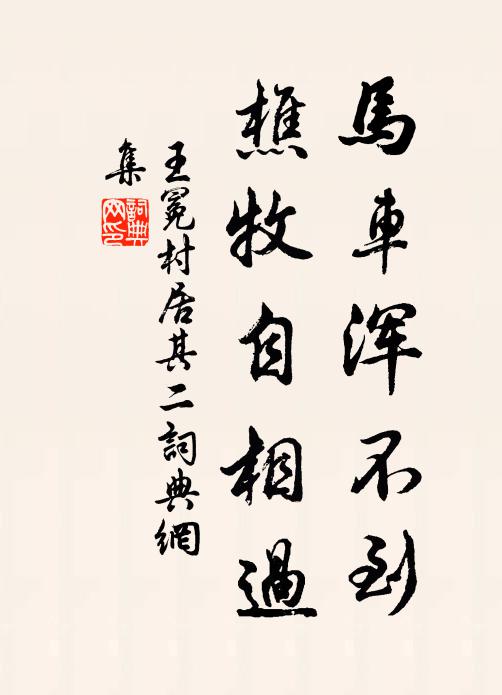 馬車浑不到
樵牧自相過
王冕村居其二詞典網
集
詞典
网印